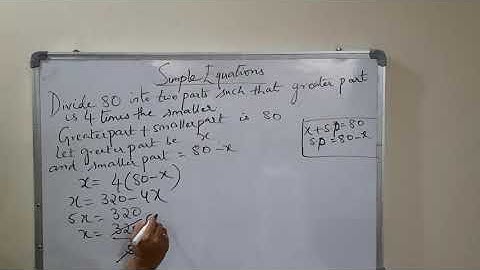 Simple Equations
Divide 80 into two parts such that greater part
is 4 times the smaller
Greaterpart + smallerpart is 80
Let greeterpart be x
and smaller part = 80-x
x = 4(80-x)
x = 320-4x
5x = 320
x = 320
x+sp=80
sp=80-x